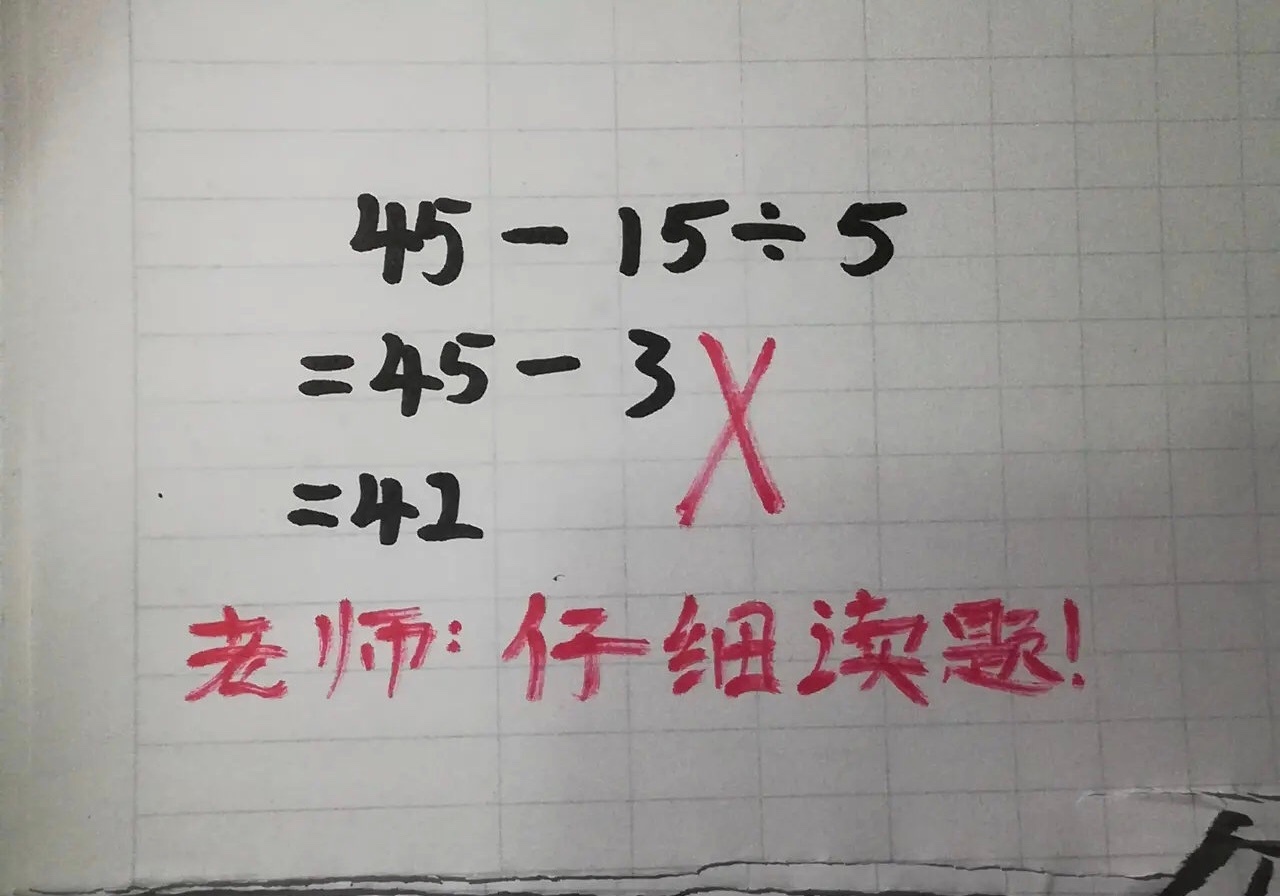 45 - 15 ÷ 5
= 45 - 3
= 42
老师: 仔细读题!